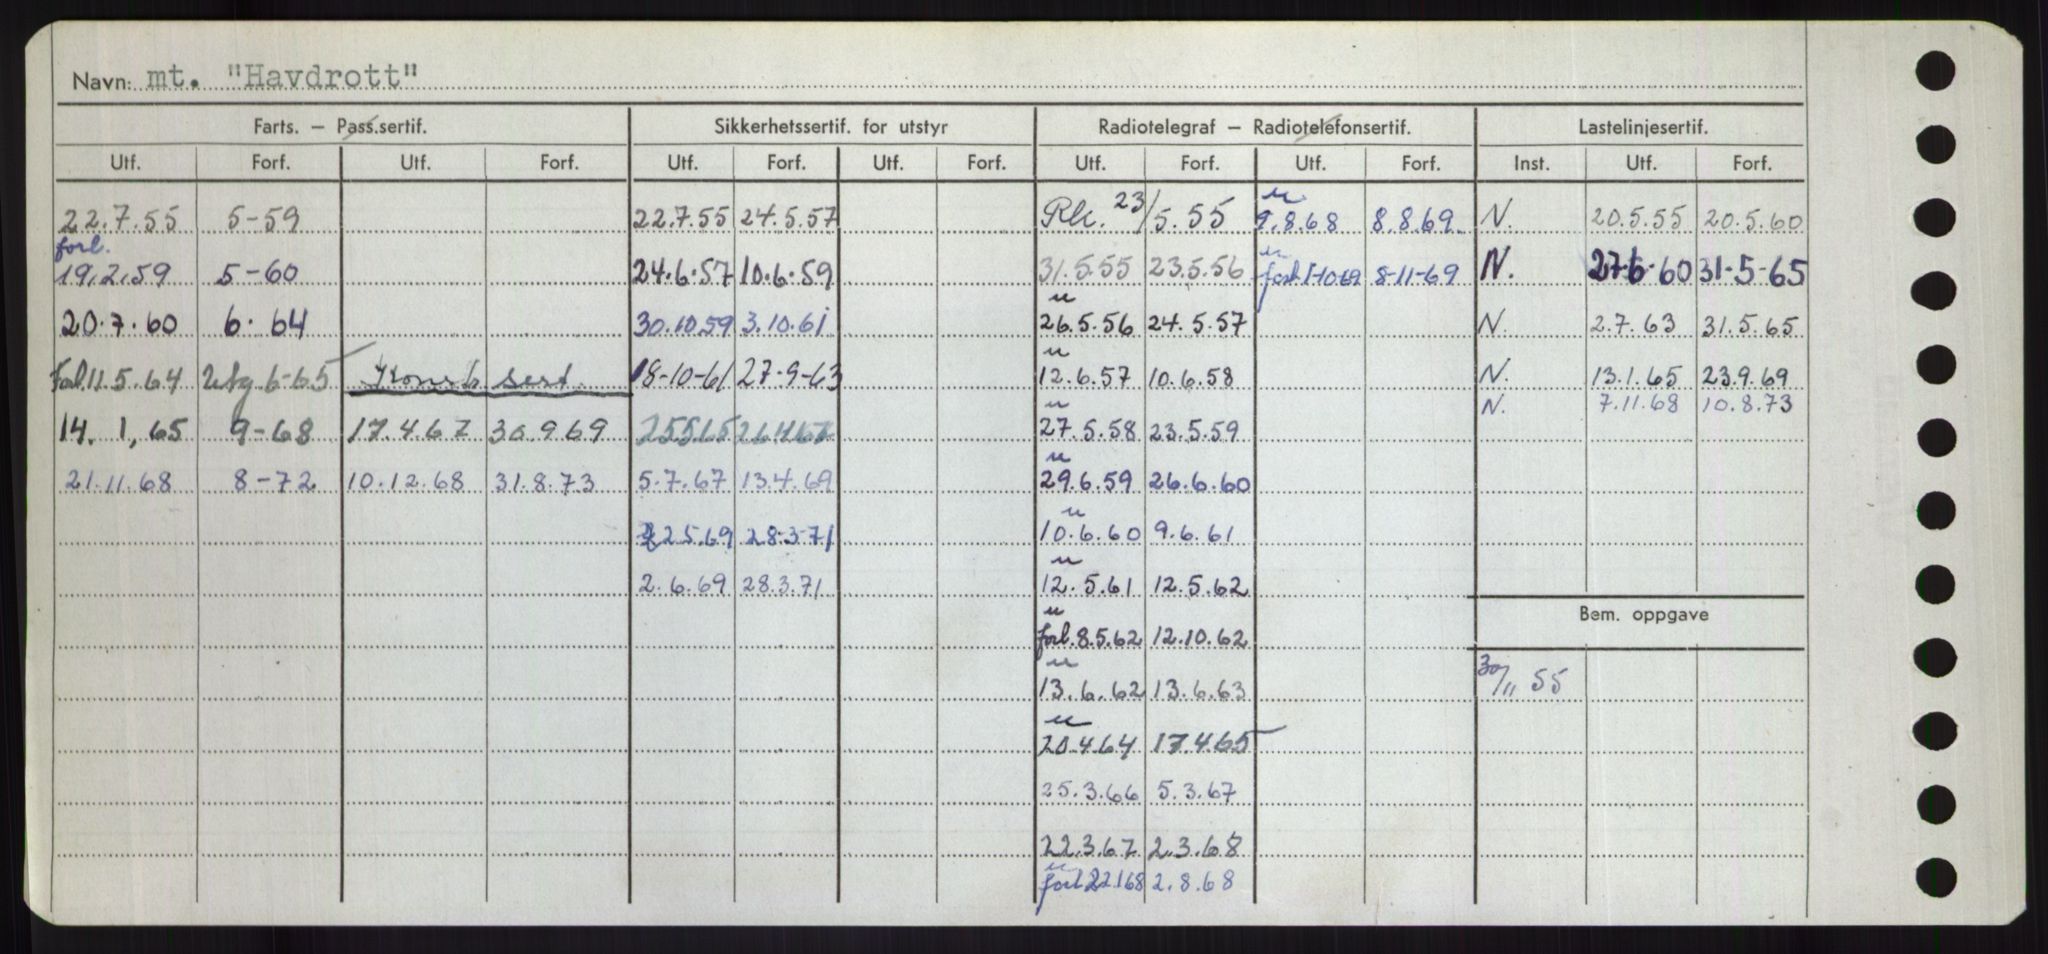 Navn: mt. "Havdrott"
Farts. – Pass.sertif. Sikkerhetssertif. for utstyr Radiotelegraf – Radiotelefonsertif. Lastelinjesertif.
Utf. Forf. Utf. Forf. Utf. Forf. Utf. Forf. Utf. Forf. Utf. Forf. Inst. Utf. Forf.
22.7.55 5-59 22.7.55 24.5.57 23/5.55 u 9.8.68 8.8.69 N. 20.5.55 20.5.60
forl. 19.2.59 5-60 24.6.57 10.6.59 31.5.55 23.5.56 u forl 1-10-69 8-11-69 N. 27.6.60 31-5-65
20.7.60 6.64 30.10.59 3.10.61 u 26.5.56 24.5.57 N. 2.7.63 31.5.65
Forl. 11.5.64 utg 6-65 sert. 18-10-61 27-9-63 u 12.6.57 10.6.58 N. 13.1.65 23.9.69
N. 7.11.68 10.8.73
14.1,65 9-68 17.4.67 30.9.69 25565 26467 u 27.5.58 23.5.59
21.11.68 8-72 10.12.68 31.8.73 5.7.67 13.4.69 u 29.6.59 26.6.60
22569 28-3-71 u 10.6.60 9.6.61
2.6.69 28.3.71 u 12.5.61 12.5.62
Bem. oppgave
u forl. 8.5.62 12.10.62
u 13.6.62 13.6.63 30/11 55
u 20.4.64 17.4.65
25.3.66 5.3.67
22.3.67 2.3.68
u forl 22168 2.8.68